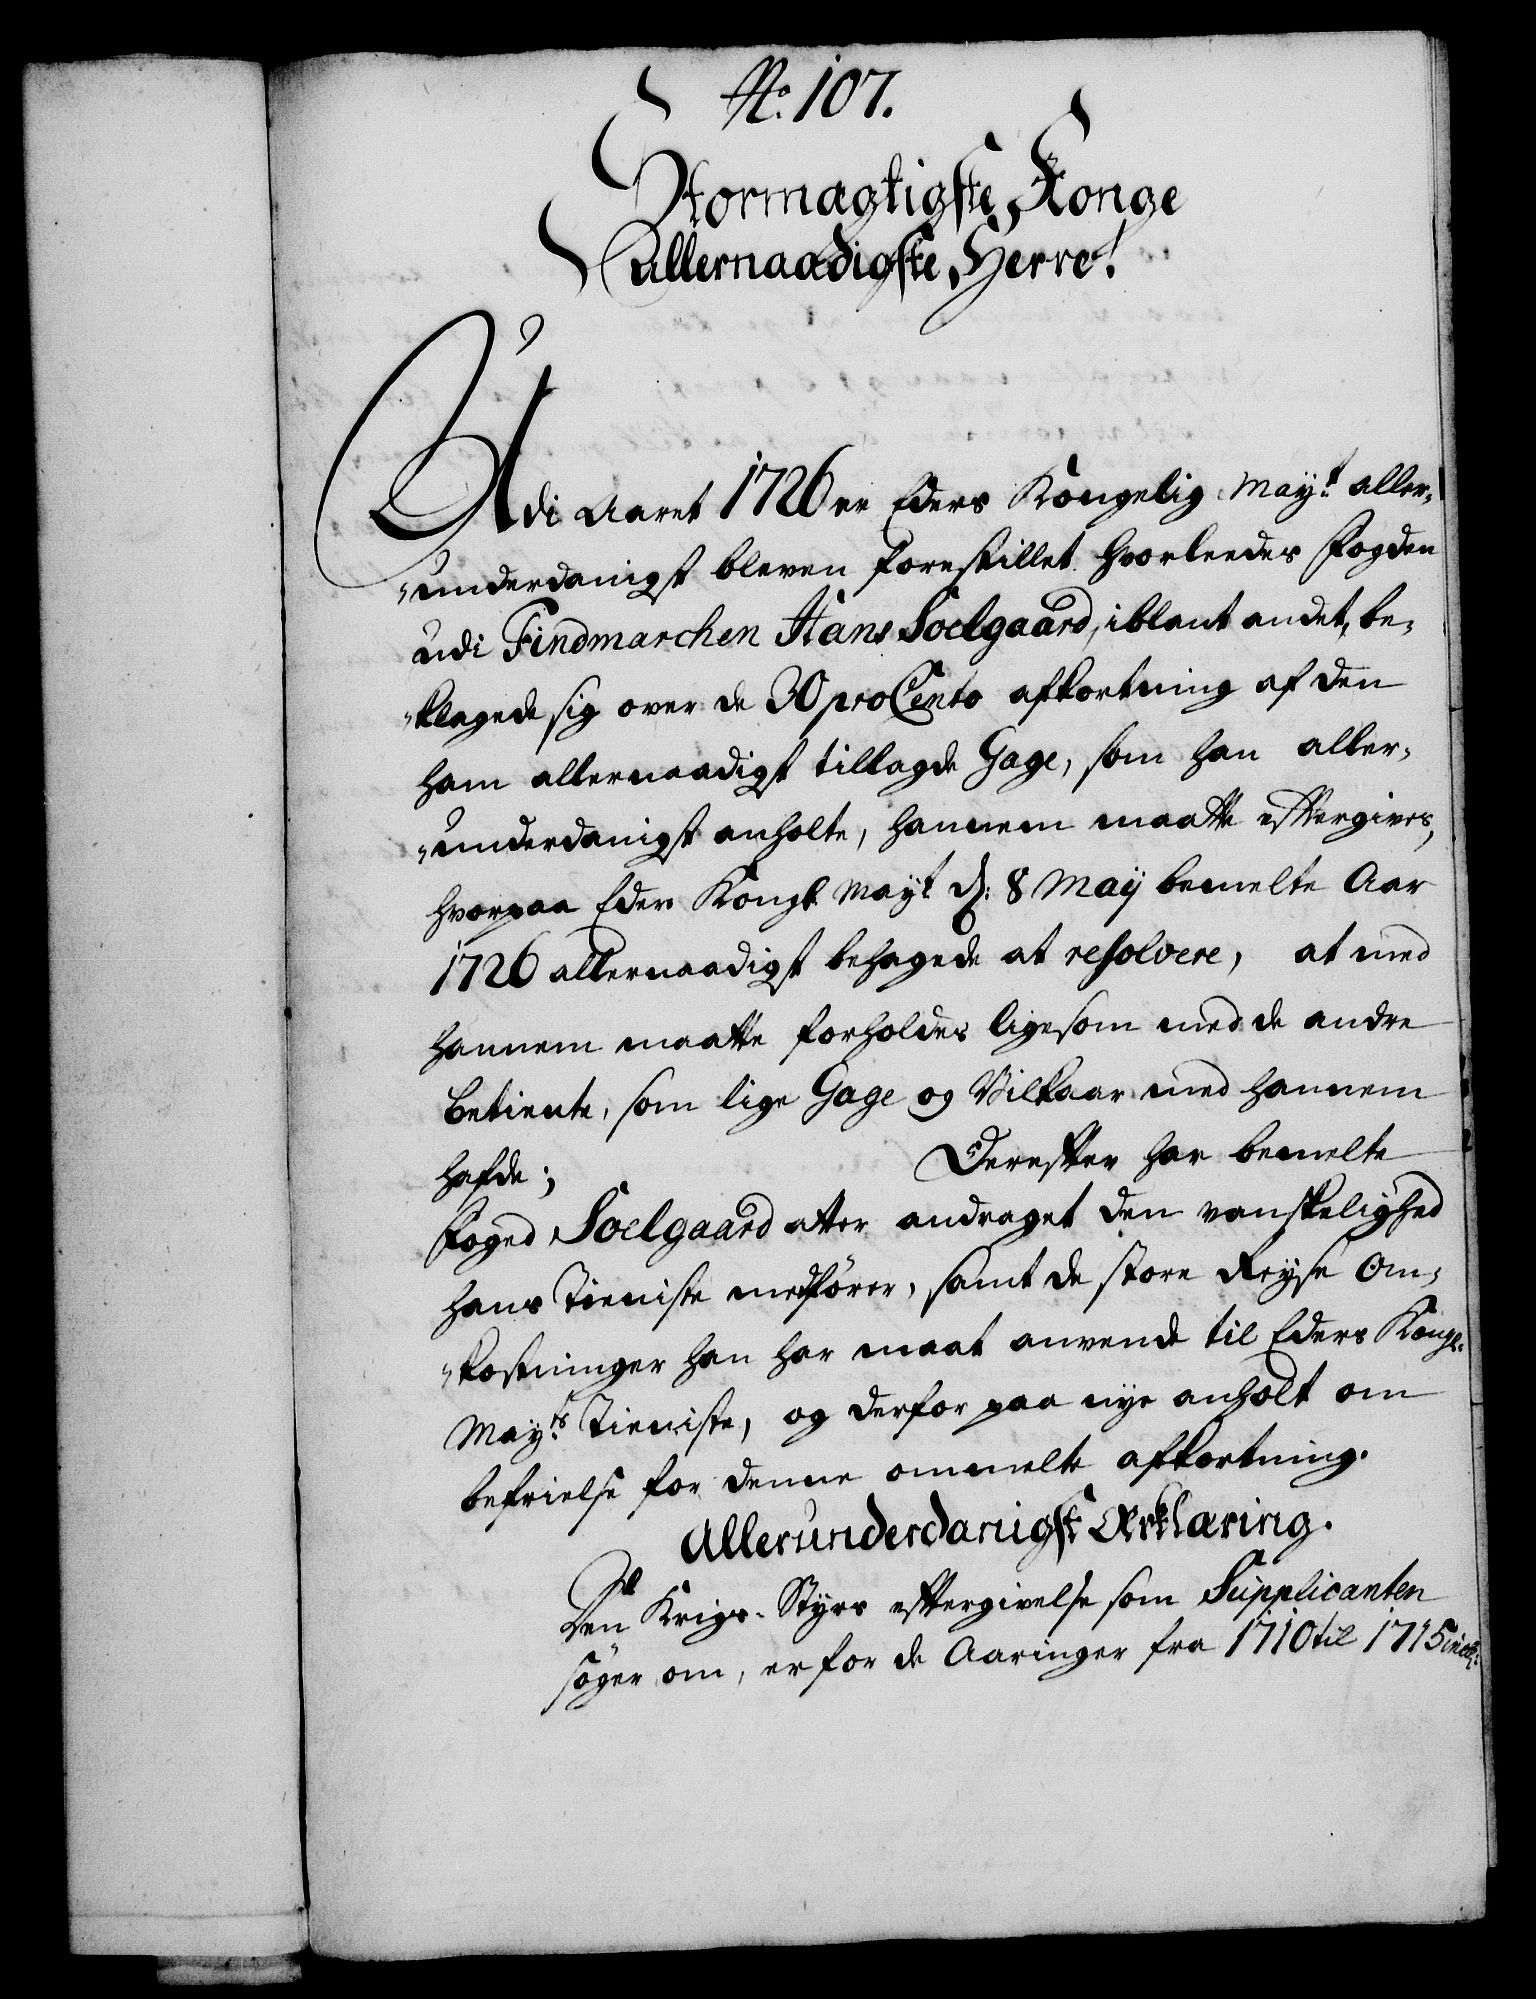 No. 107.
Stormægtigste Konge
Allernaadigste Herre!
Udi Aaret 1726 er Eders Kongelig Mayt. aller-
underdanigst bleven forestillet hvorleedes Fogden
udi Findmarchen Hans Soelgaard, iblant andet, be-
klagede sig over de 30 pro Cento afkortning af den
ham allernaadigst tillagde Gage, som han aller-
underdanigst anholte, hannem maatte efftergives,
hvorpaa Eders Kongl. Mayt. d: 8 Maÿ bemelte Aar
1726 allernaadigst behagede at resolvere, at med
hannem maatte forholdes ligesom med de andre
Betiente, som lige Gage og Vilkaar med hannem
hafde; Derefter har bemelte
Foged Soelgaard atter andraget den vanskelighed
hans Tieniste medfører, samt de store Reyse Om-
kostninger han har maat anvende til Eders Kongl.
Mayts. Tieniste, og derfor paa nye anholt om
befrielse for denne ommelte afkortning.
Allerunderdanigst Erklæring.
Den Krigs-Styrs efftergivelse som Supplicanten
søger om, er for de Aaringer fra 1710 til 1715 incl: